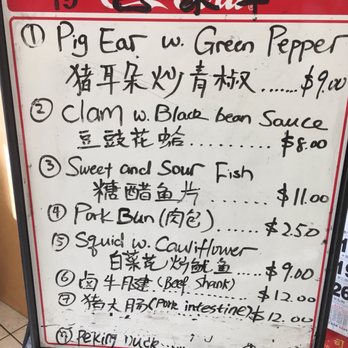 ① Pig Ear w. Green Pepper
猪耳朵炒青椒......$9.00
② Clam w. Black bean Sauce
豆豉花蛤.......... $8.00
③ Sweet and Sour Fish
糖醋鱼片 ......... $11.00
④ Pork Bun (肉包) ...... $2.50
⑤ Squid w. Cauliflower
白菜花炒鱿鱼...$9.00
⑥ 卤牛腱 (Beef Shank) ... $12.00
⑦ 猪大肠 (Pork intestine) $12.00
Peking Duck